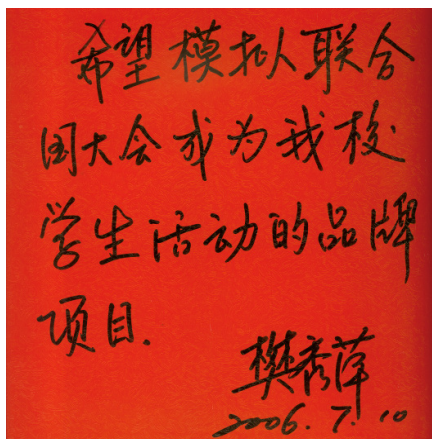 希望模拟人联合
国大会成为我校
学生活动的品牌
项目.
樊秀萍
2006.7.10